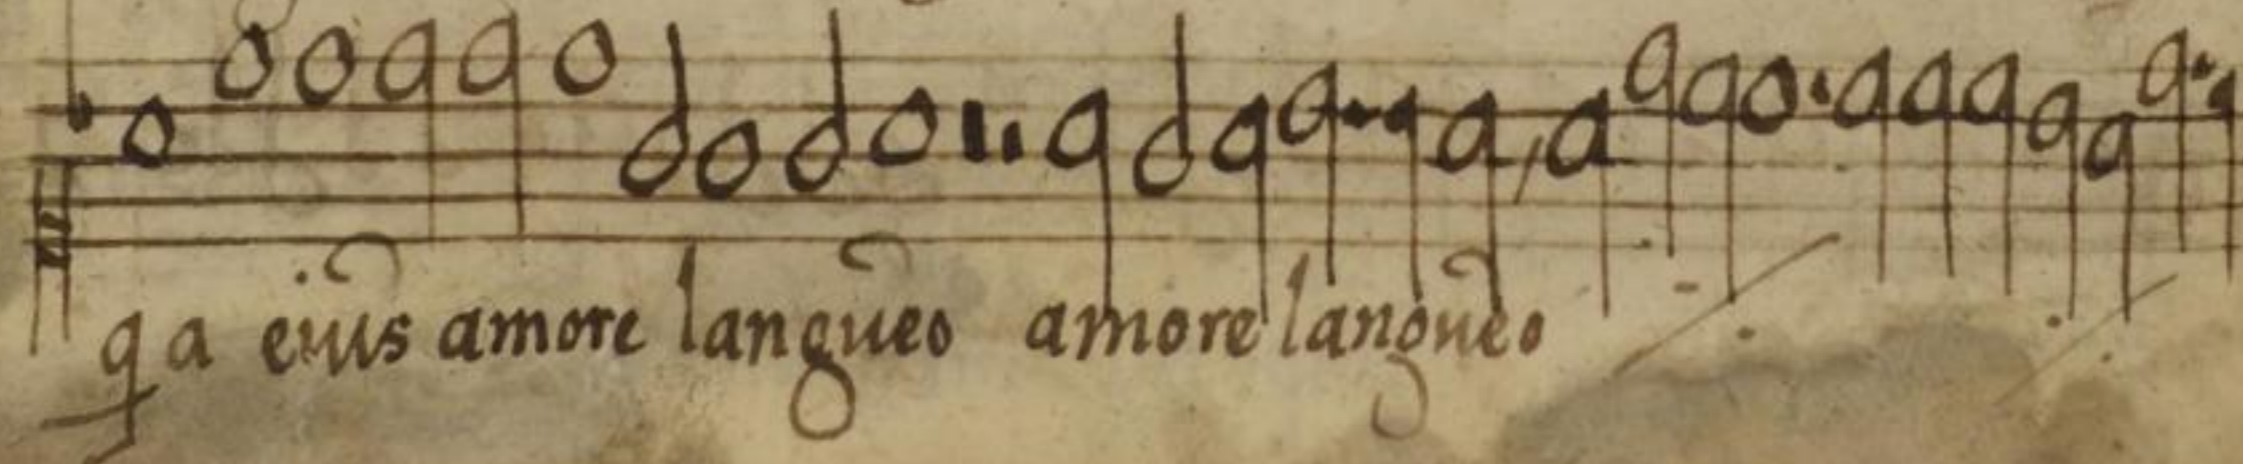 qa eius amore langueo amore langueo